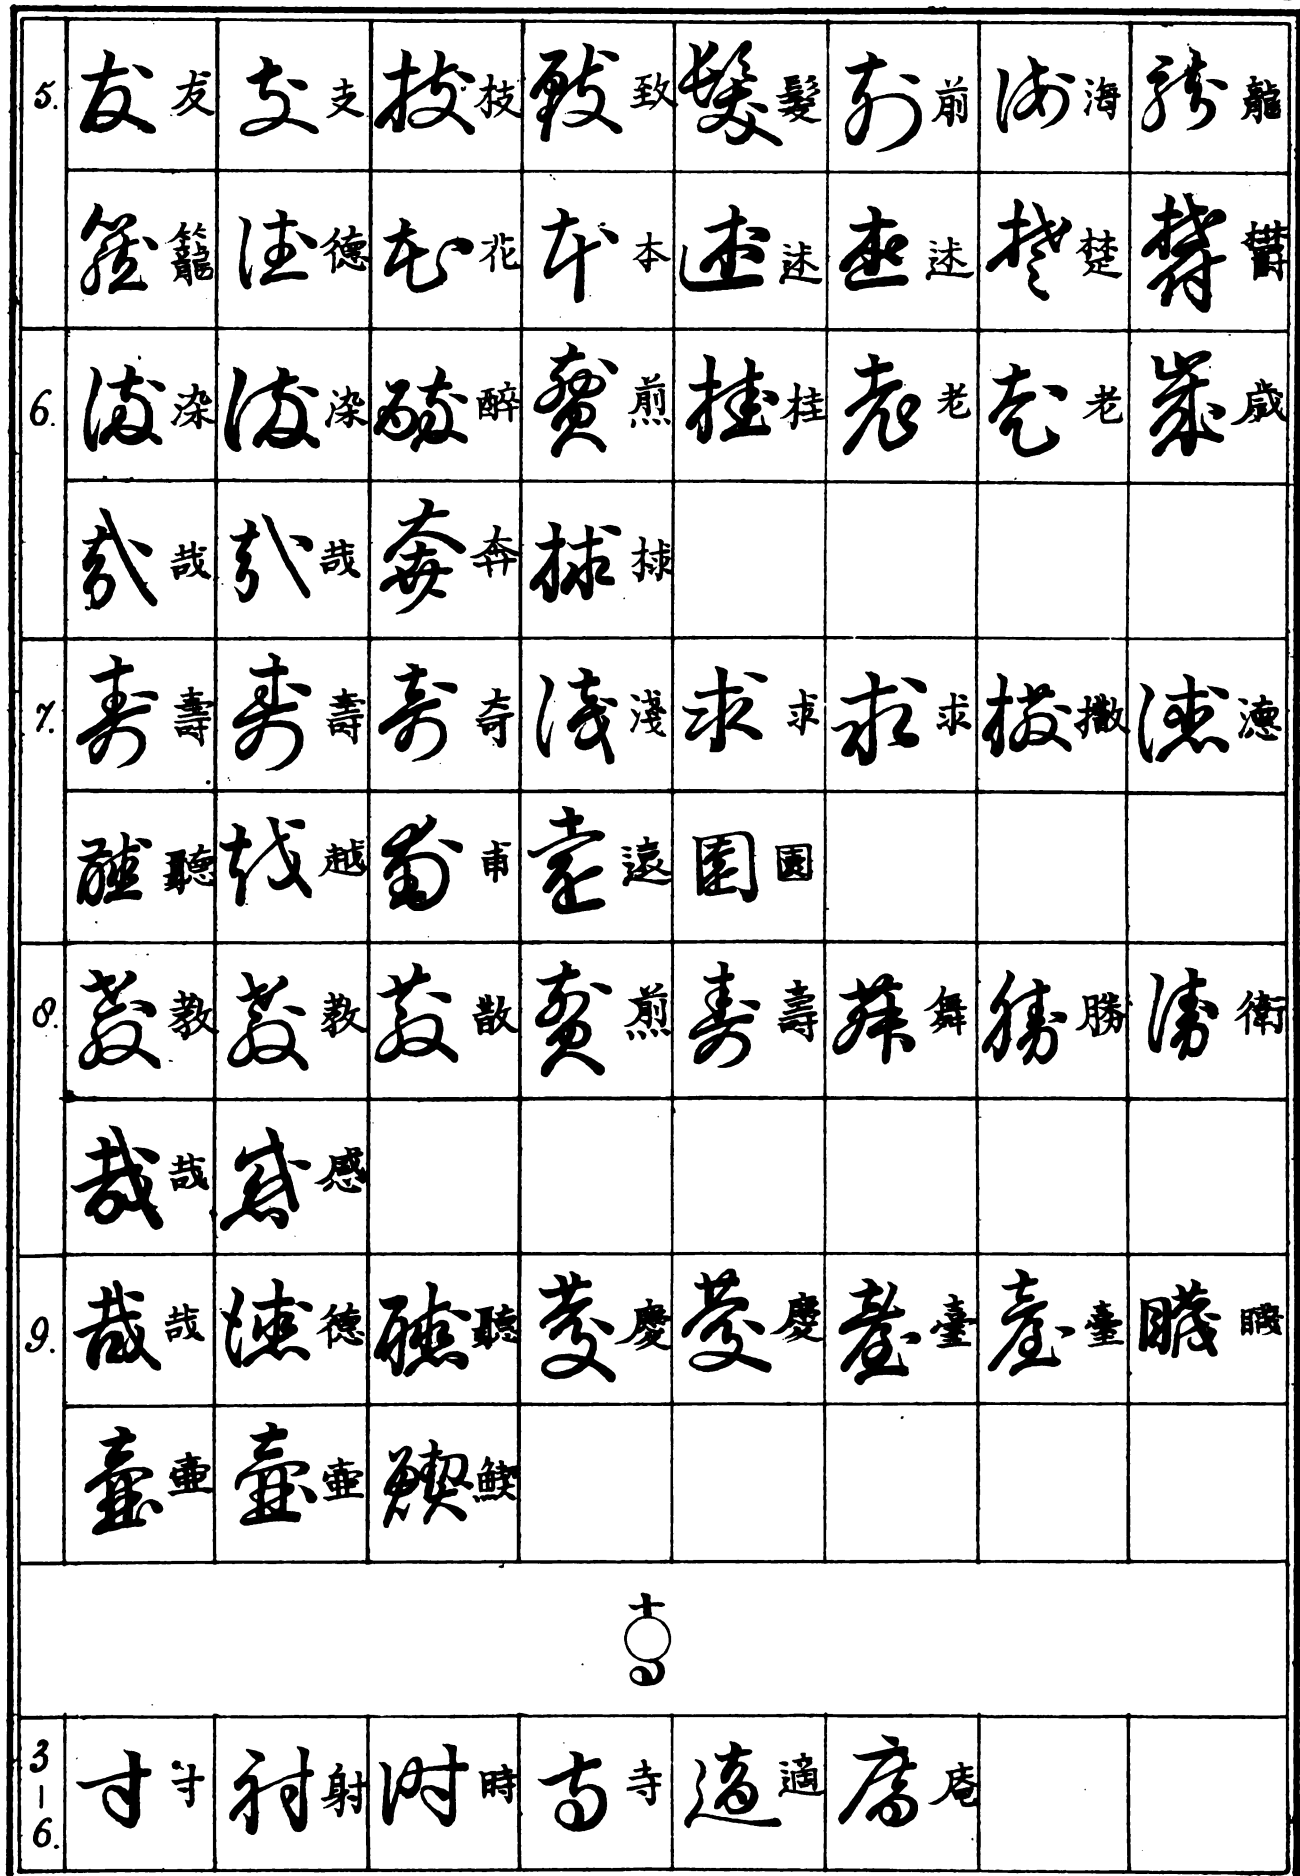 5. 友 友 支 支 技 枝 致 致 髮 髮 前 前 海 海 龍 龍
籠 籠 德 德 花 花 本 本 述 述 述 述 楚 楚 欝
6. 染 染 染 染 醉 醉 煎 煎 桂 桂 老 老 老 老 歲 歳
哉 哉 哉 哉 奔 奔 捄 捄
7. 壽 壽 壽 壽 奇 奇 淺 淺 求 求 求 求 撒 撒 漶
聽 聽 越 越 甫 甫 遠 遠 園 園
8. 教 教 教 教 散 散 煎 煎 壽 壽 舞 舞 勝 勝 衛 衛
哉 哉 感 感
9. 哉 哉 德 德 聽 聽 慶 慶 慶 慶 臺 臺 臺 臺
壷 壷 壷 壷
3-6. 寸 寸 射 射 時 時 寺 寺 適 適 庵 庵